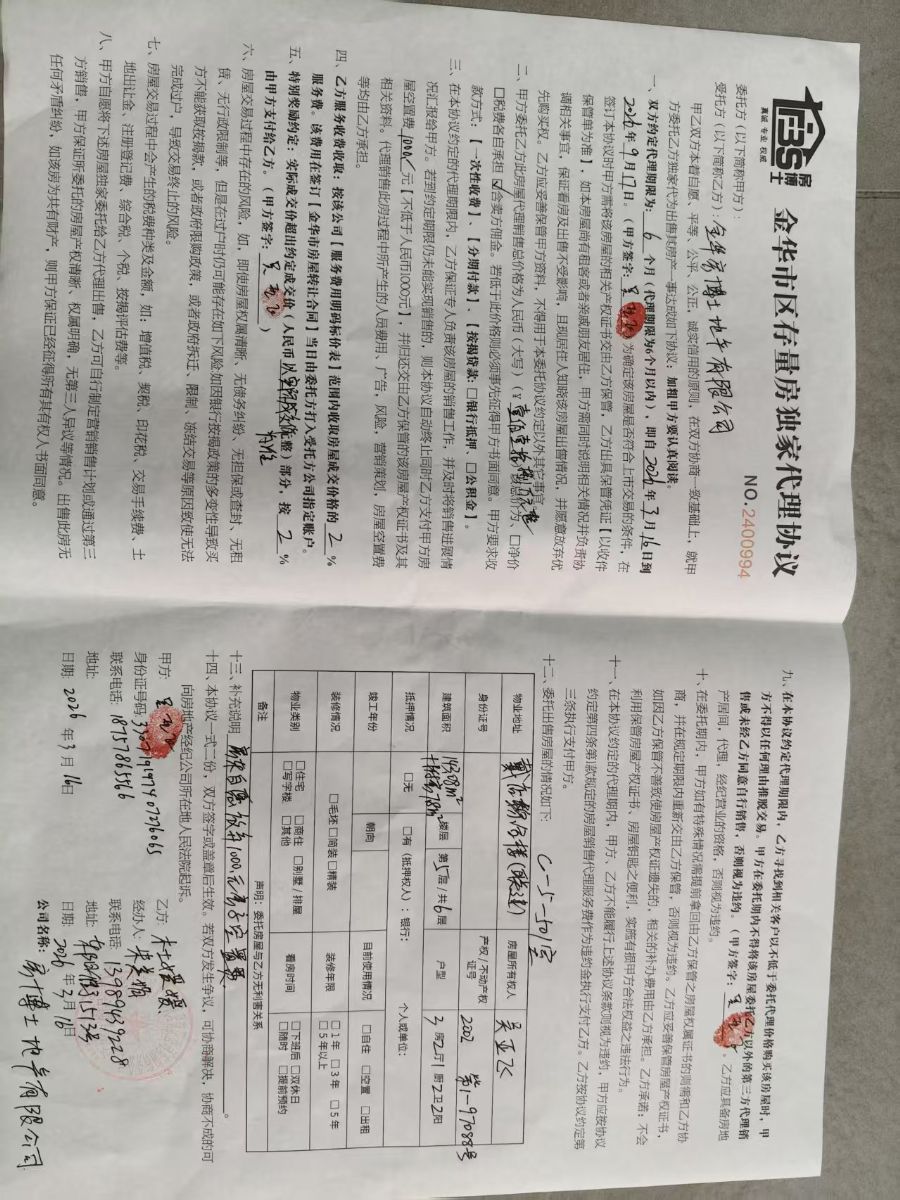 房博士
真诚 专业 权威
金华市区存量房独家代理协议
NO.2400994
委托方(以下简称甲方):
受托方(以下简称乙方):金华房博士地产有限公司
甲乙双方本着自愿、平等、公平、公正、诚实信用的原则,在双方协商一致基础上,就甲
方委托乙方独家代为出售其房产一事达成如下协议:加粗甲方要认真阅读。
一、双方约定代理期限为: 6 个月(代理期限为6个月以内),即自2026年3月16日到
2026年9月17日。(甲方签字: )为确定该房屋是否符合上市交易的条件,在
签订本协议时甲方需将该房屋的相关产权证书交由乙方保管,乙方出具保管凭证【以收件
保管单为准】,如本房屋尚有租客或者亲戚朋友居住,甲方需同时说明相关情况并负责协
调相关事宜,保证看房及出售不受影响,且现居住人知晓该房屋出售情况,并愿意放弃优
先购买权。乙方应妥善保管甲方资料,不得用于本委托协议约定以外其它事宜。
二、甲方委托乙方此房屋代理销售总价格为人民币(大写)(¥ )该总价为:□净价
□税费各自承担 ☑含卖方佣金。若低于此价格则必须事先征得甲方书面同意。甲方要求收
款方式:【一次性收费】、【分期付款】、【按揭贷款:□银行抵押、□公积金】。
三、在本协议约定的代理期限内,乙方保证专人负责该房屋的销售工作,并及时将销售进展情
况汇报给甲方。若到约定期限仍未能实现销售的,则本协议自动终止同时乙方支付甲方房
屋空置费 1000 元【不低于人民币1000元】,并归还交由乙方保管的该房屋产权证书及其
相关资料。代理销售此房过程中所产生的人员费用、广告、风险、营销策划、房屋空置费
等均由乙方承担。
四、乙方服务收费收取:按该公司【服务费用明码标价表】范围内收取房屋成交价格的 2 %
服务费。该费用在签订【金华市房屋转让合同】当日由委托方打入受托方公司指定账户。
五、特别奖励约定:实际成交价超出约定成交价(人民币 整)部分,按 2 %
由甲方支付给乙方。(甲方签字: )
六、房屋交易过程中存在的风险,如:即使房屋权属清晰、无债务纠纷、无担保或查封、无租
债、无行政限制等,但是在过户时仍可能存在如下风险,如因银行按揭政策的多变性导致买
方不能获取按揭款,或者政府限购政策,或者政府拆迁、限制、冻结交易等原因致使无法
完成过户,导致交易终止的风险。
七、房屋交易过程中会产生的税费种类及金额,如:增值税、契税、印花税、交易手续费、土
地出让金、注册登记费、综合税、个税、按揭评估费等。
八、甲方自愿将下述房屋独家委托给乙方代理出售,乙方可自行制定营销销售计划或通过第三
方销售,甲方保证所委托的房屋产权清晰、权属明确,无第三人异议等情况。出售此房无
任何矛盾纠纷,如该房为共有财产,则甲方保证已经征得所有其有权人书面同意。
九、在本协议约定代理期限内,乙方寻找到相关客户以不低于委托代理价格购买该房屋时,甲
方不得以任何理由推脱交易。甲方在委托期内不得将该房屋委托乙方以外的第三方代理销
售或未经乙方同意自行销售,否则视为违约。(甲方签字: )。乙方应具备房地
产居间,代理,经纪营业的资格,否则视为违约。
十、在委托期内,甲方如有特殊情况需提前拿回由乙方保管之房屋权属证书的则需和乙方协
商,并在规定期限内重新交由乙方保管,否则视为违约。乙方应妥善保管房屋产权证书,
如因乙方保管不善致使房屋产权证遗失的,相关的补办费用由乙方承担。乙方承诺:不会
利用保管房屋产权证书、房屋钥匙之便利,实施有损甲方合法权益之违法行为。
十一、在本协议约定的代理期内,甲方、乙方不能履行上述协议条款则视为违约,甲方应按协议
约定第四条第1款规定的房屋销售代理服务费作为违约金执行支付乙方。乙方按协议约定第
三条执行支付甲方。
十二、委托出售房屋的情况如下:
物业地址 C-5-501室 房屋所有权人 吴亚飞
身份证号 产权/不动产权证号 2002 第1-97088号
建筑面积 楼层 第5层/共6层 户型 3房2厅1厨2卫2阳
抵押情况 □无 □有(抵押权人):银行: 个人或单位:
竣工年份 朝向 目前使用情况 □自住 □空置 □出租
装修情况 □毛坯 □简装 □精装 装修年限 □1年 □3年 □5年 □5年以上
物业类别 □住宅 □商住 □别墅/排屋 □写字楼 □其他 看房时间 □下班后 □双休日 □随时 □提前预约
备注 声明:委托房屋与乙方无利害关系
十三、补充说明:
十四、本协议一式二份,双方签字或盖章后生效。若双方发生争议,可协商解决,协商不成的可
向房地产经纪公司所在地人民法院起诉。
甲方:
身份证号码:
联系电话:18757865666
地址:
日期:2026年3月16日
乙方:杜媛媛
经办人:
联系电话:13989439228
地址:
日期:2026年3月16日
公司名称:房博士地产有限公司